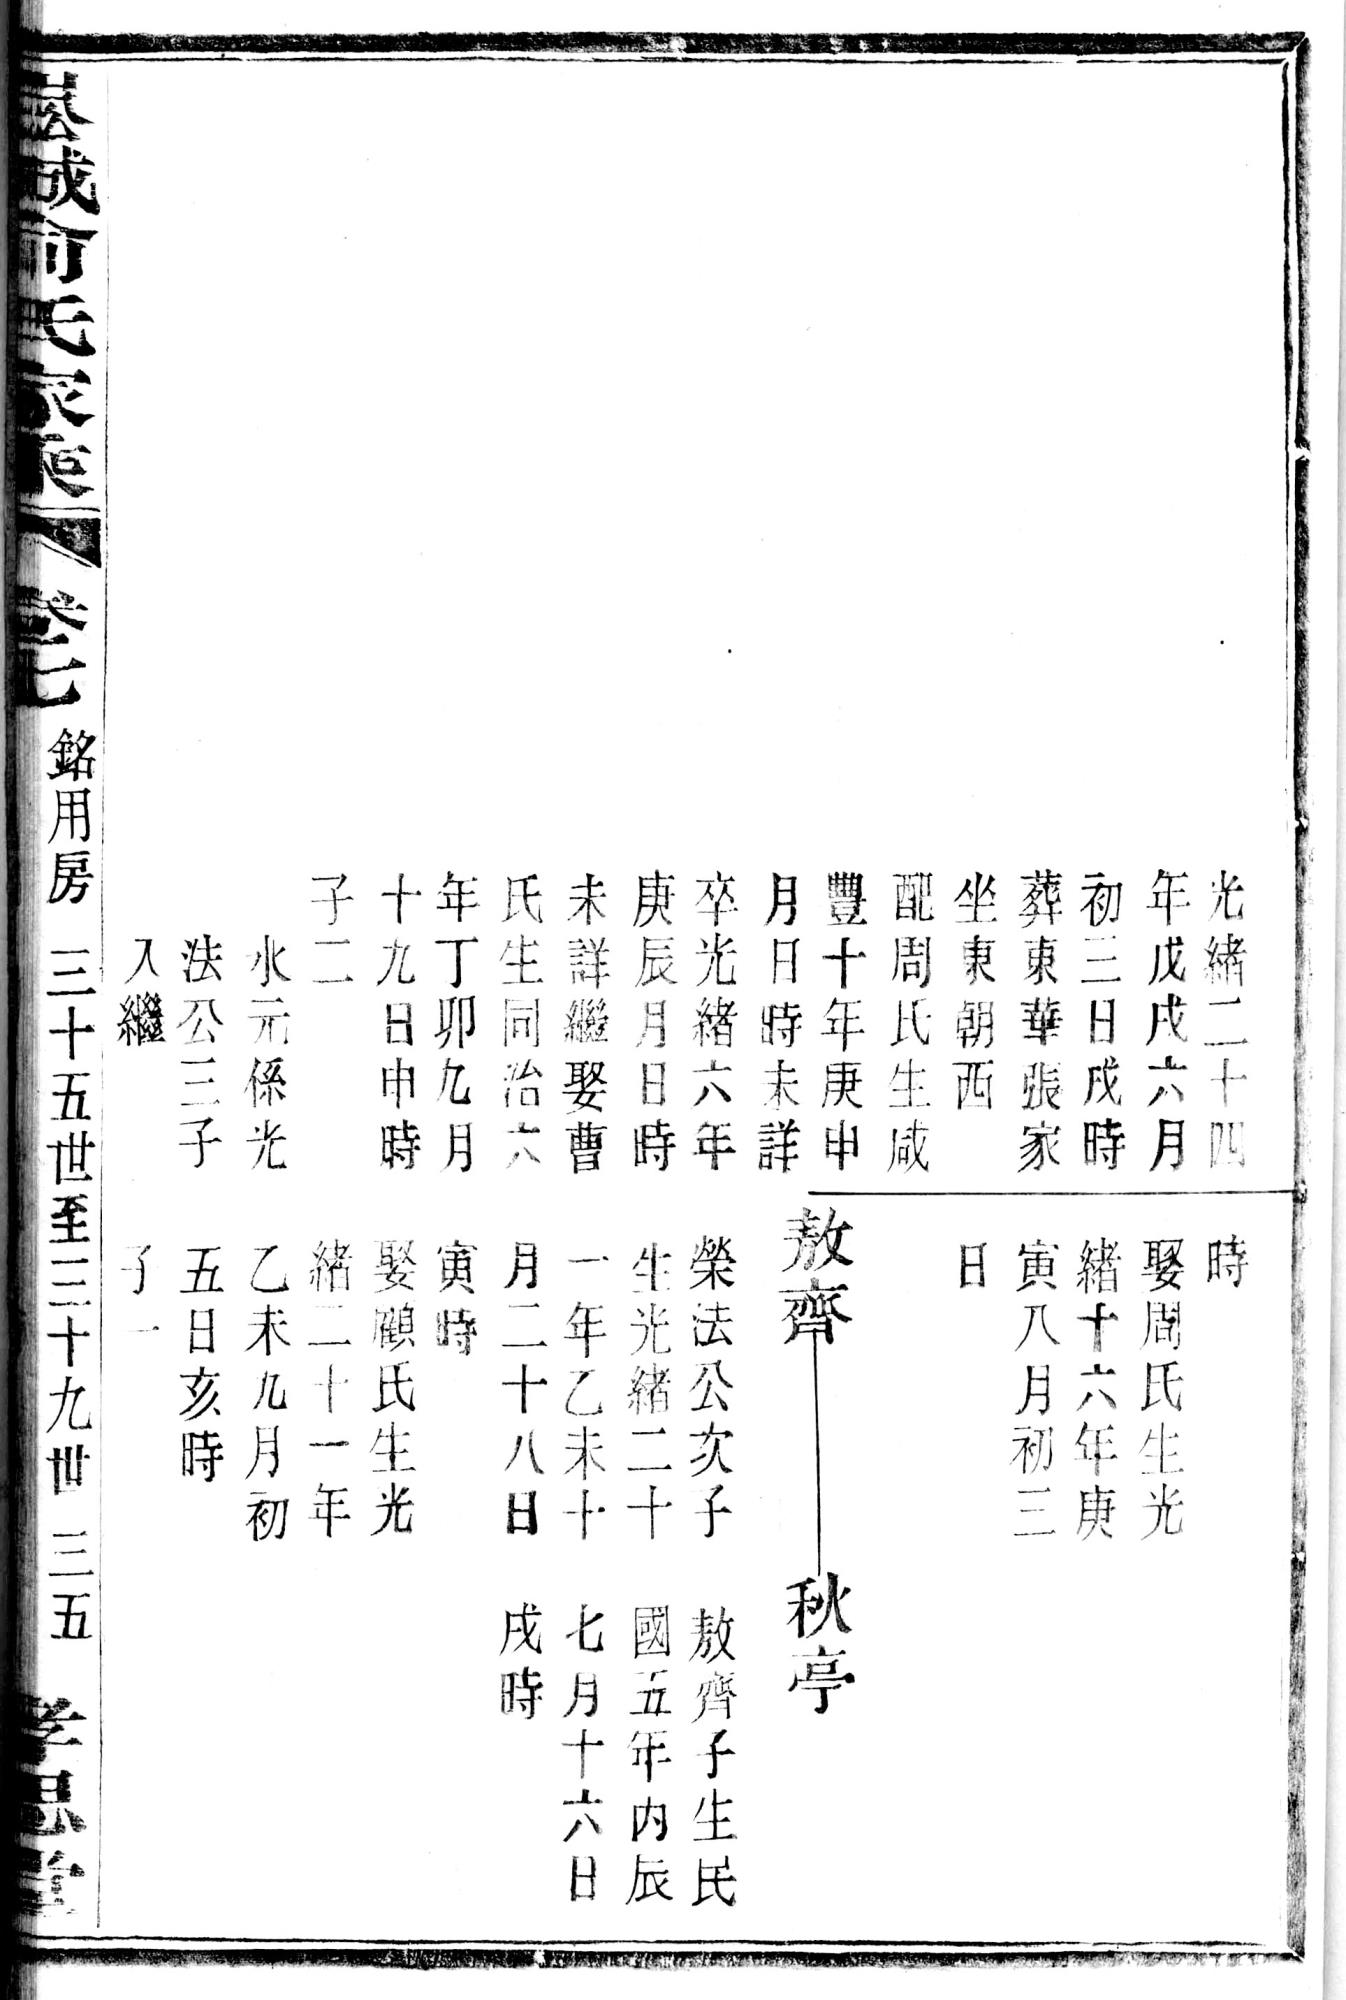 光緒二十四
年戊戌六月
初三日戌時
葬東華張家
坐東朝西
配周氏生咸
豐十年庚申
月日時未詳
卒光緒六年
庚辰月日時
未詳繼娶曹
氏生同治六
年丁卯九月
十九日申時
子二
水元係光
法公三子
入繼
時
娶周氏生光
緒十六年庚
寅八月初三
日
敖齊
榮法公次子
生光緒二十
一年乙未十
月二十八日
寅時
娶顧氏生光
緒二十一年
乙未九月初
五日亥時
子一
秋亭
敖齊子生民
國五年内辰
七月十六日
戌時
氏家乘 卷七 銘用房 三十五世至三十九世 三五 孝思堂